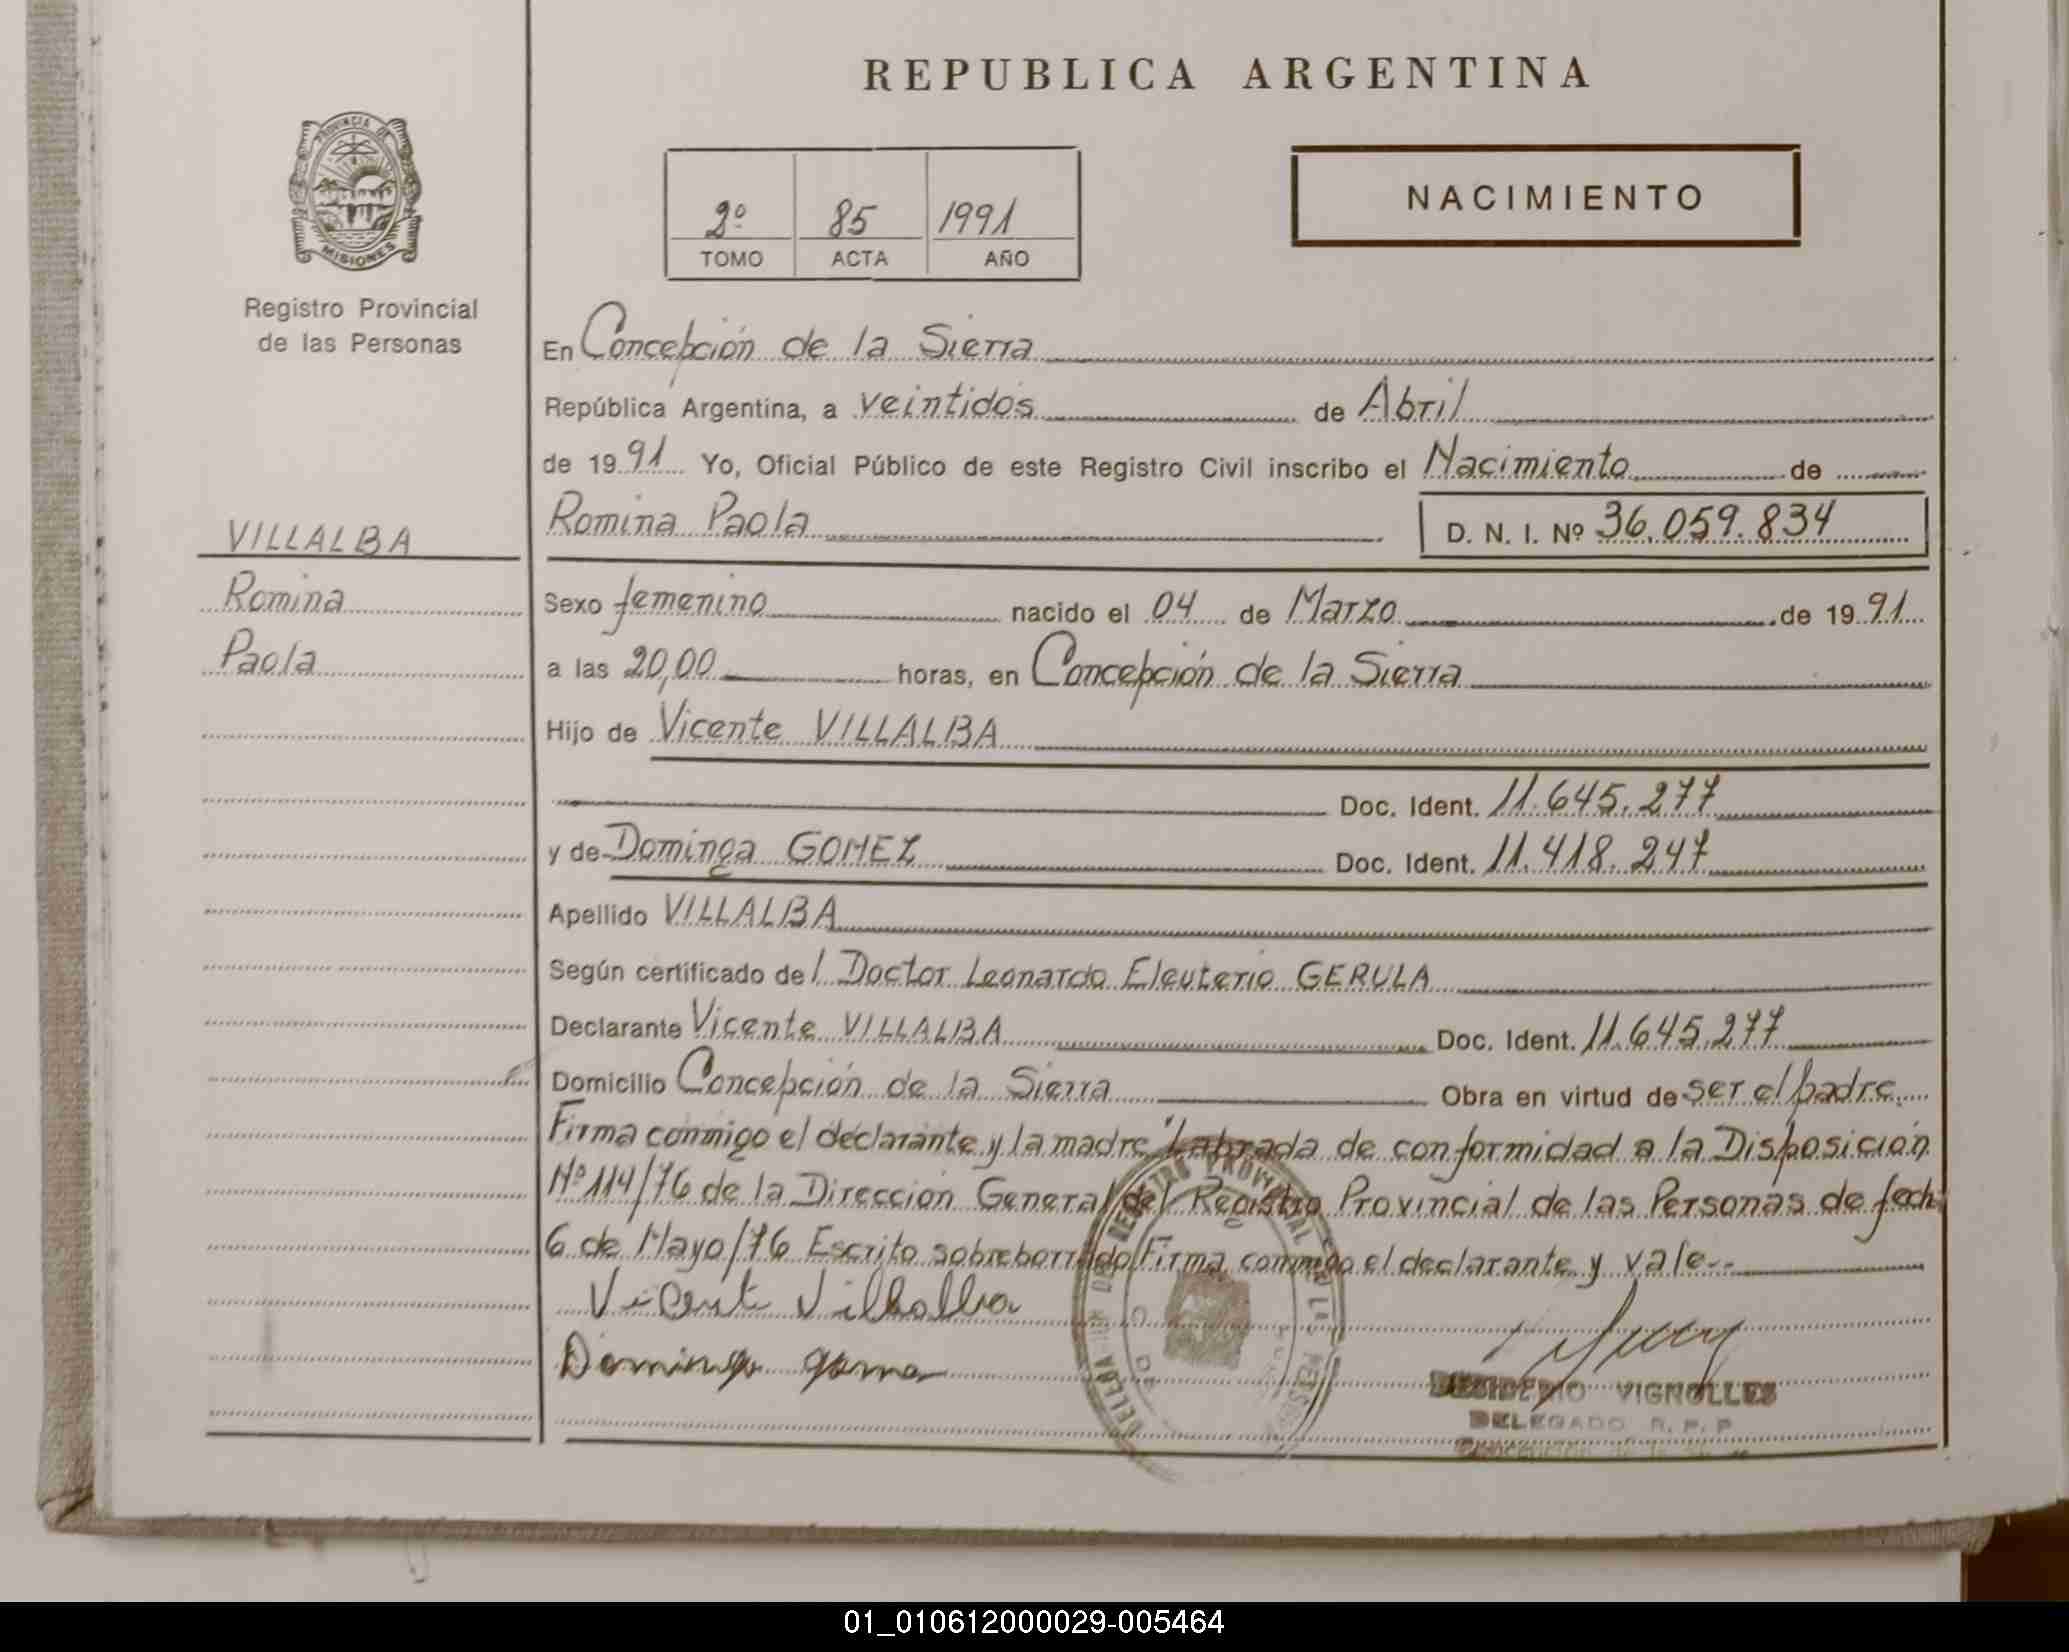 REPUBLICA ARGENTINA
PROVINCIA DE
MISIONES
Registro Provincial
de las Personas
2º 85 1991
TOMO ACTA AÑO
NACIMIENTO
En Concepción de la Sierra
República Argentina, a veintidós de Abril
de 1991 Yo, Oficial Público de este Registro Civil inscribo el Nacimiento de
Romina Paola D. N. I. Nº 36.059.834
VILLALBA
Romina
Paola
Sexo femenino nacido el 04 de Marzo de 1991
a las 20,00 horas, en Concepción de la Sierra
Hijo de Vicente VILLALBA
Doc. Ident. 11.645.277
y de Dominga GOMEZ Doc. Ident. 11.418.247
Apellido VILLALBA
Según certificado del Doctor Leonardo Eleuterio GERULA
Declarante Vicente VILLALBA Doc. Ident. 11.645.277
Domicilio Concepción de la Sierra Obra en virtud de ser el padre.
Firma conmigo el declarante y la madre "Labrada de conformidad a la Disposición
Nº 114/76 de la Dirección General del Registro Provincial de las Personas de fech
6 de Mayo/76 Escrito sobreborrado Firma conmigo el declarante y vale.-
Vicente Villalba
Dominga Gome
DESIDERIO VIGNOLLES
DELEGADO R. P. P.
Concepción de la
01_010612000029-005464